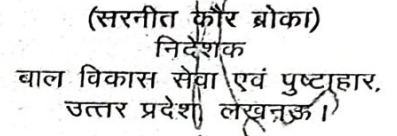 (सरनीत कौर ब्रोका)
निदेशक
बाल विकास सेवा एवं पुष्टाहार,
उत्तर प्रदेश, लखनऊ।